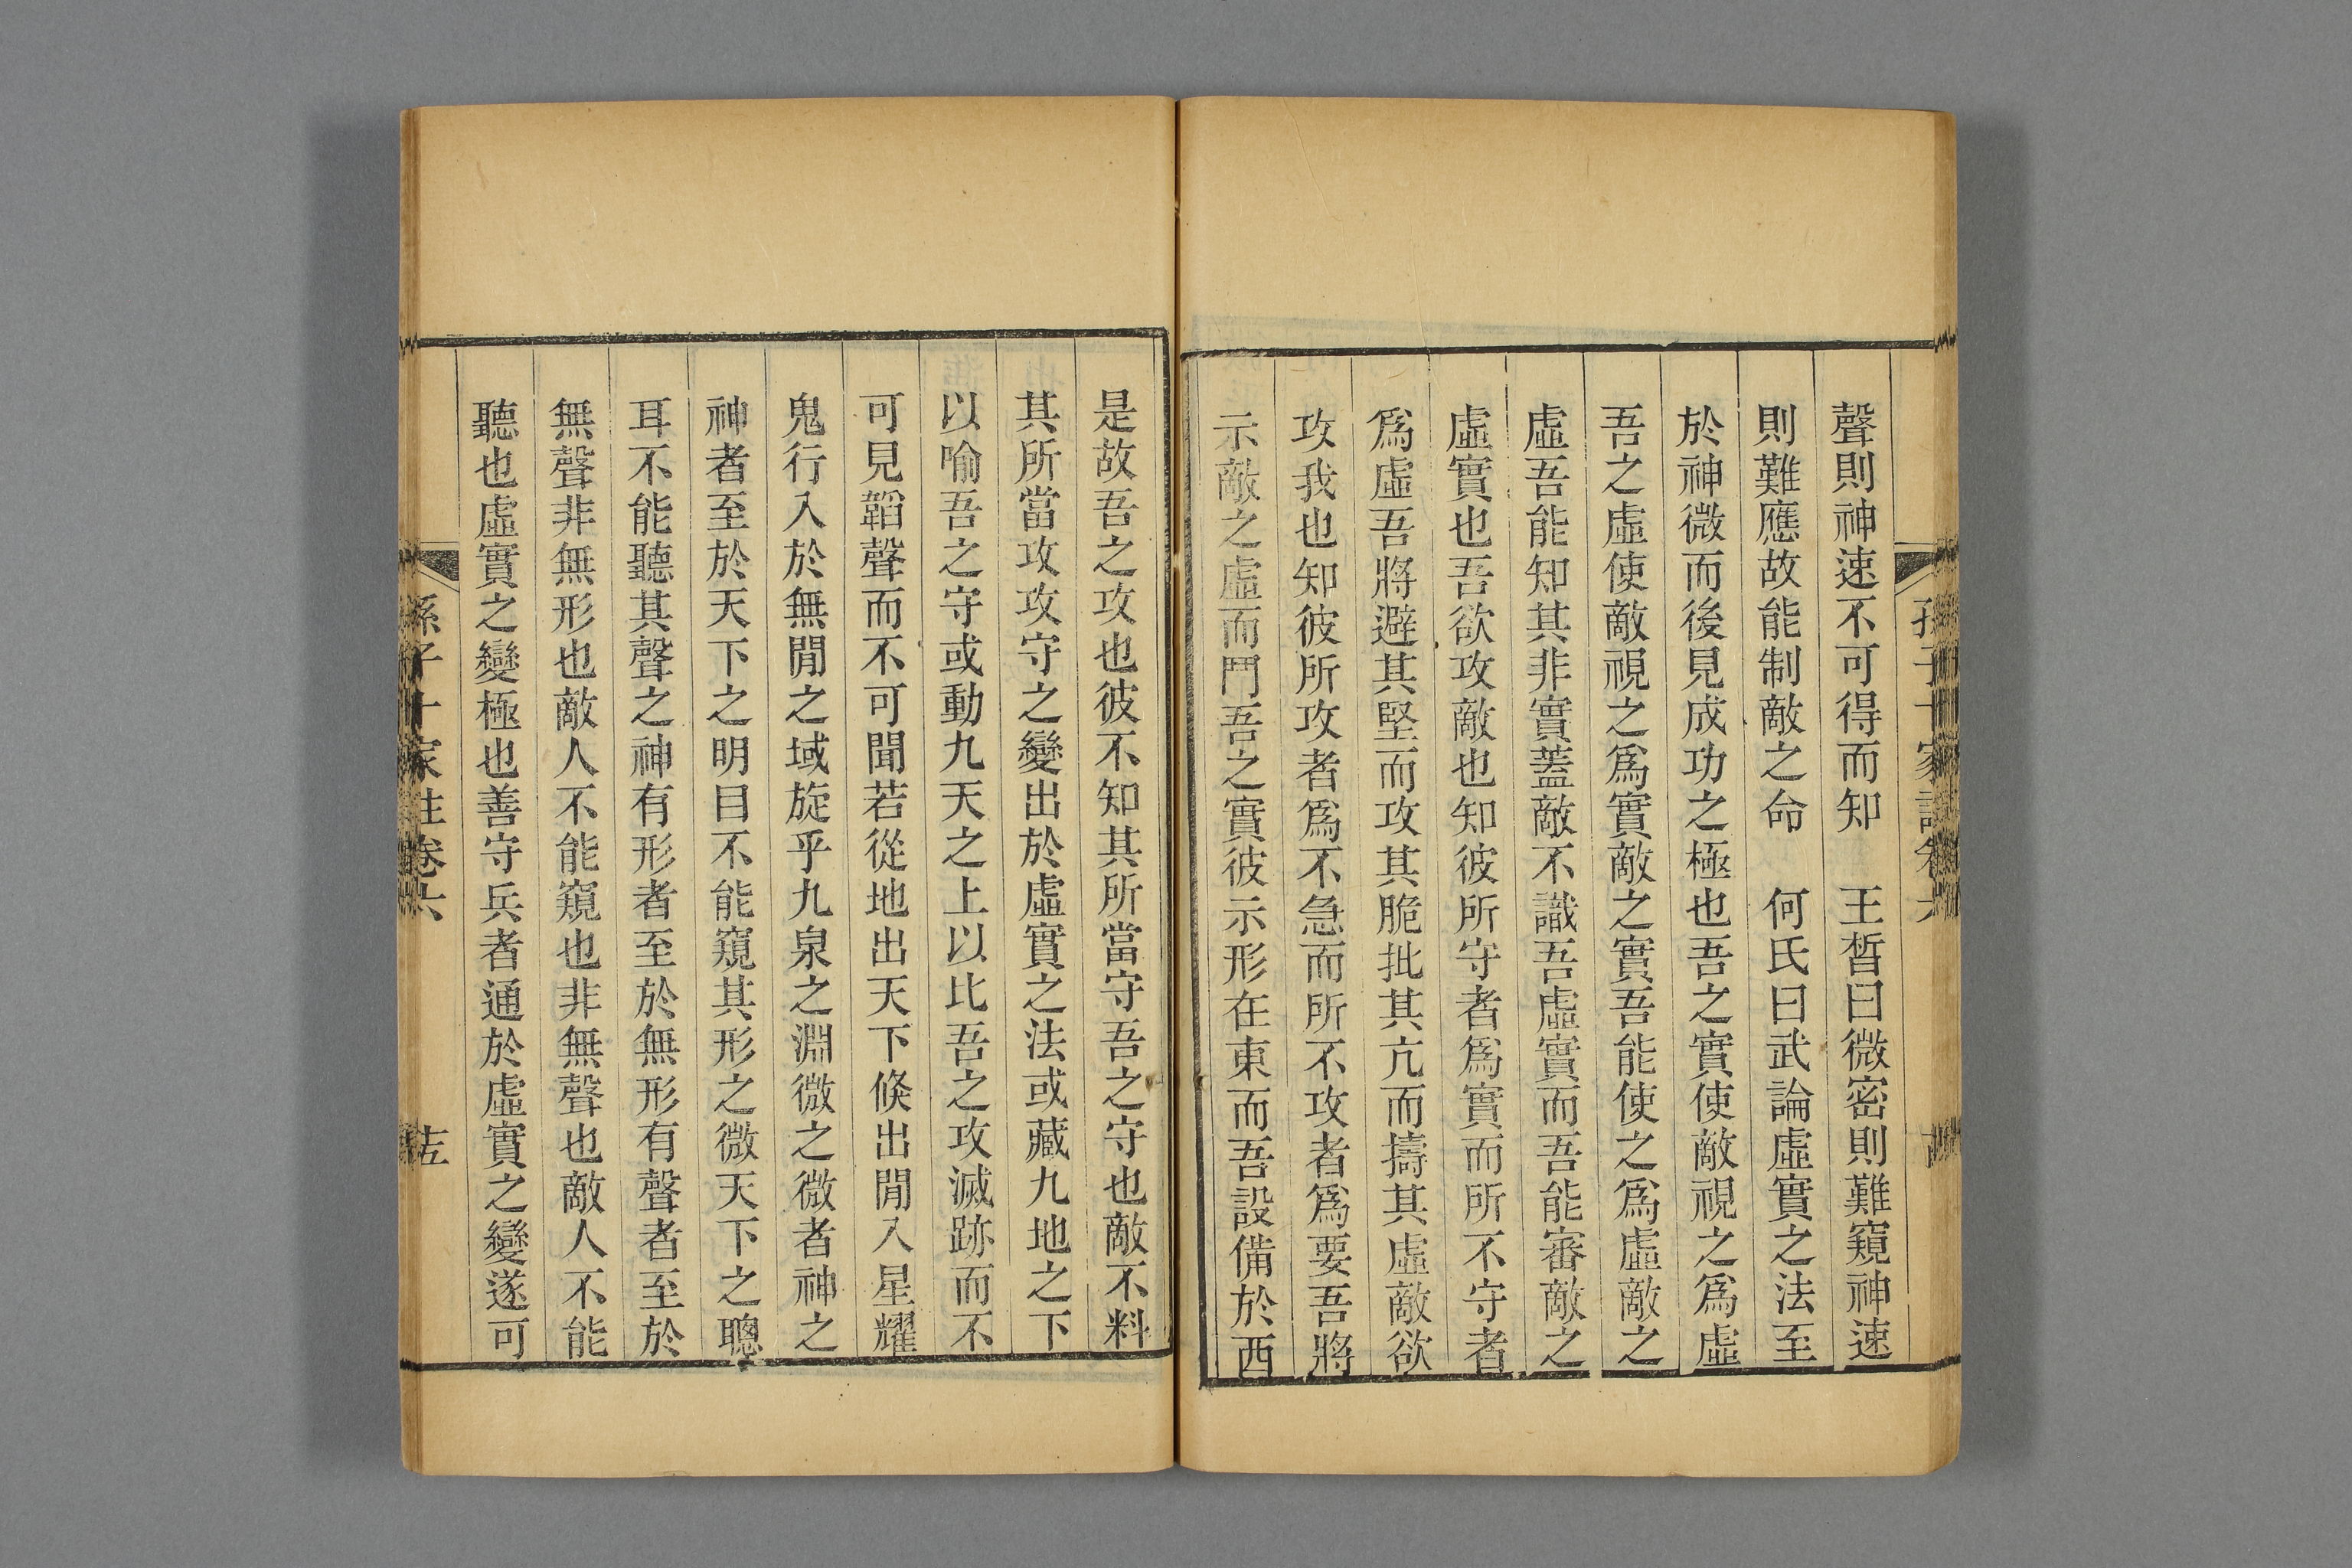 聲則神速不可得而知　王晳曰微密則難窺神速
則難應故能制敵之命　何氏曰武論虛實之法至
於神微而後見成功之極也吾之實使敵視之爲虛
吾之虛使敵視之爲實敵之實吾能使之爲虛敵之
虛吾能知其非實蓋敵不識吾虛實而吾能審敵之
虛實也吾欲攻敵也知彼所守者爲實而所不守者
爲虛吾將避其堅而攻其脆批其亢而擣其虛敵欲
攻我也知彼所攻者爲不急而所不攻者爲要吾將
示敵之虛而鬥吾之實彼示形在東而吾設備於西
是故吾之攻也彼不知其所當守吾之守也敵不料
其所當攻攻守之變出於虛實之法或藏九地之下
以喻吾之守或動九天之上以比吾之攻滅跡而不
可見韜聲而不可聞若從地出天下倏出閒入星耀
鬼行入於無閒之域旋乎九泉之淵微之微者神之
神者至於天下之明目不能窺其形之微天下之聰
耳不能聽其聲之神有形者至於無形有聲者至於
無聲非無形也敵人不能窺也非無聲也敵人不能
聽也虛實之變極也善守兵者通於虛實之變遂可
孫子十家註卷六